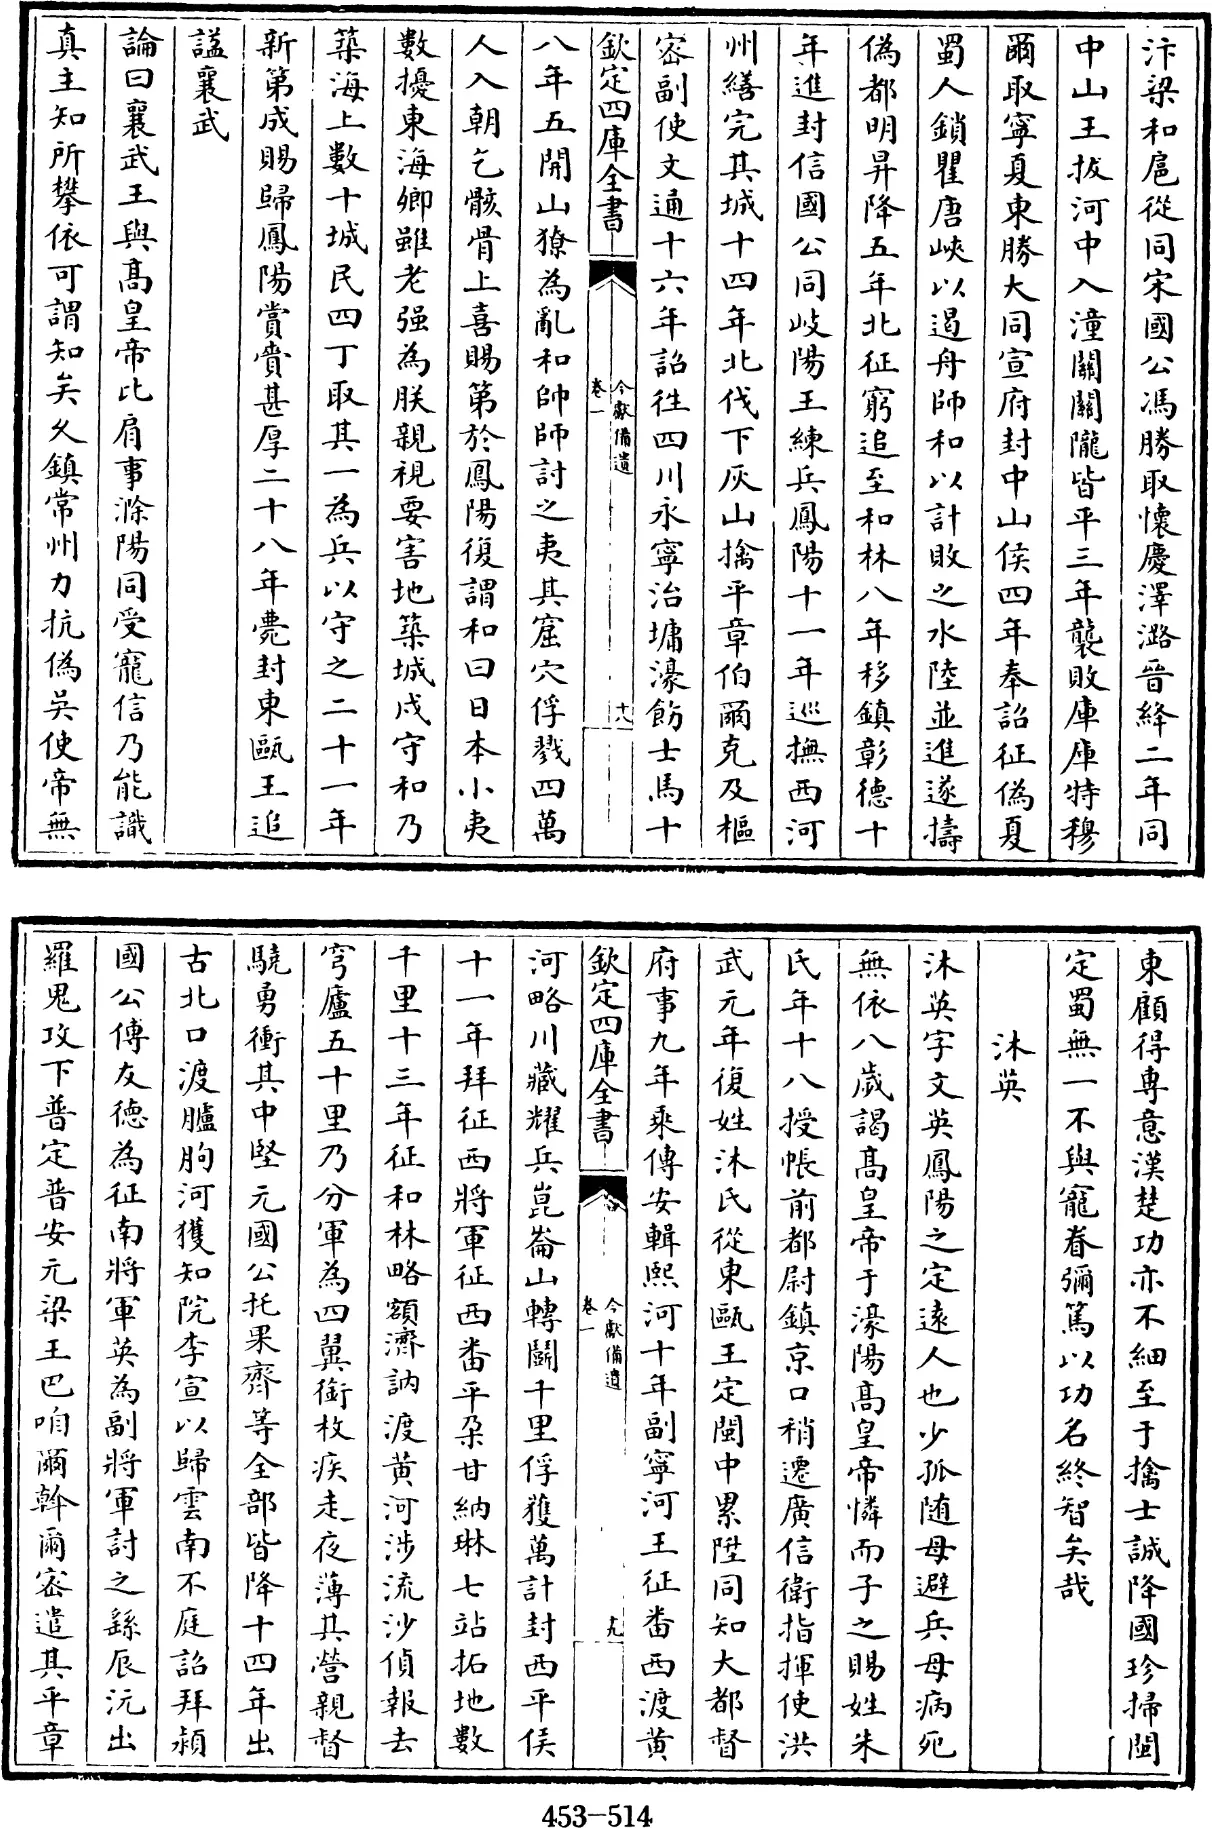 汴梁和扈從同宋國公馮勝取懷慶澤潞晉絳二年同
中山王拔河中入潼關關隴皆平三年襲敗庫庫特穆
爾取寧夏東勝大同宣府封中山侯四年奉詔征偽夏
蜀人鎖瞿唐峽以遏舟師和以計敗之水陸並進遂擣
偽都明昇降五年北征窮追至和林八年移鎮彰德十
年進封信國公同岐陽王練兵鳳陽十一年巡撫西河
州繕完其城十四年北伐下灰山擒平章伯爾克及樞
密副使文通十六年詔徃四川永寧治墉濠飭士馬十
欽定四庫全書
今獻備遺
卷一
十八
八年五開山獠為亂和帥師討之夷其窟穴俘戮四萬
人入朝乞骸骨上喜賜第於鳳陽復謂和曰日本小夷
數擾東海卿雖老强為朕親視要害地築城戍守和乃
築海上數十城民四丁取其一為兵以守之二十一年
新第成賜歸鳳陽賞賚甚厚二十八年薨封東甌王追
諡襄武
論曰襄武王與髙皇帝比肩事滁陽同受寵信乃能識
真主知所攀依可謂知矣久鎮常州力抗偽吳使帝無
東顧得專意漢楚功亦不細至于擒士誠降國珍掃閩
定蜀無一不與寵眷彌篤以功名終智矣哉
沐英
沐英字文英鳳陽之定遠人也少孤隨母避兵母病死
無依八歲謁髙皇帝于濠陽髙皇帝憐而子之賜姓朱
氏年十八授帳前都尉鎮京口稍遷廣信衛指揮使洪
武元年復姓沐氏從東甌王定閩中累陞同知大都督
府事九年乘傳安輯熙河十年副寧河王征畨西渡黄
欽定四庫全書
今獻備遺
卷一
十九
河略川藏耀兵崑崙山轉鬬千里俘獲萬計封西平侯
十一年拜征西將軍征西畨平朶甘納琳七站拓地數
千里十三年征和林略額濟訥渡黄河涉流沙偵報去
穹廬五十里乃分軍為四翼銜枚疾走夜薄其營親督
驍勇衝其中堅元國公托果齊等全部皆降十四年出
古北口渡臚朐河獲知院李宣以歸雲南不庭詔拜潁
國公傅友德為征南將軍英為副將軍討之繇辰沅出
羅鬼攻下普定普安元梁王巴咱爾斡爾密遣其平章
453-514